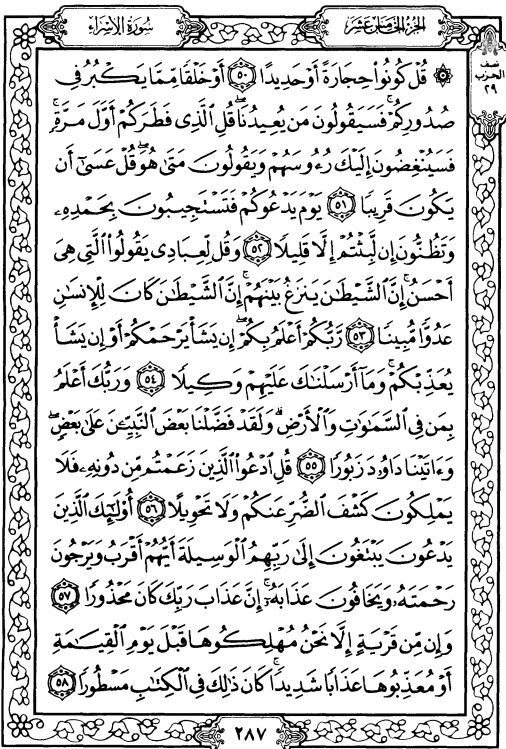 الجزء الخامس عشر
سورة الإسراء
نصف
الحزب
٢٩
۞ قُلۡ كُونُواْ حِجَارَةً أَوۡ حَدِيدًا ٥٠ أَوۡ خَلۡقٗا مِّمَّا يَكۡبُرُ فِي
صُدُورِكُمۡۚ فَسَيَقُولُونَ مَن يُعِيدُنَاۖ قُلِ ٱلَّذِي فَطَرَكُمۡ أَوَّلَ مَرَّةٖۚ
فَسَيُنۡغِضُونَ إِلَيۡكَ رُءُوسَهُمۡ وَيَقُولُونَ مَتَىٰ هُوَۖ قُلۡ عَسَىٰٓ أَن
يَكُونَ قَرِيبٗا ٥١ يَوۡمَ يَدۡعُوكُمۡ فَتَسۡتَجِيبُونَ بِحَمۡدِهِۦ
وَتَظُنُّونَ إِن لَّبِثۡتُمۡ إِلَّا قَلِيلٗا ٥٢ وَقُل لِّعِبَادِي يَقُولُواْ ٱلَّتِي هِيَ
أَحۡسَنُۚ إِنَّ ٱلشَّيۡطَٰنَ يَنزَغُ بَيۡنَهُمۡۚ إِنَّ ٱلشَّيۡطَٰنَ كَانَ لِلۡإِنسَٰنِ
عَدُوّٗا مُّبِينٗا ٥٣ رَّبُّكُمۡ أَعۡلَمُ بِكُمۡۖ إِن يَشَأۡ يَرۡحَمۡكُمۡ أَوۡ إِن يَشَأۡ
يُعَذِّبۡكُمۡۚ وَمَآ أَرۡسَلۡنَٰكَ عَلَيۡهِمۡ وَكِيلٗا ٥٤ وَرَبُّكَ أَعۡلَمُ
بِمَن فِي ٱلسَّمَٰوَٰتِ وَٱلۡأَرۡضِۗ وَلَقَدۡ فَضَّلۡنَا بَعۡضَ ٱلنَّبِيِّـۧنَ عَلَىٰ بَعۡضٖۖ
وَءَاتَيۡنَا دَاوُۥدَ زَبُورٗا ٥٥ قُلِ ٱدۡعُواْ ٱلَّذِينَ زَعَمۡتُم مِّن دُونِهِۦ فَلَا
يَمۡلِكُونَ كَشۡفَ ٱلضُّرِّ عَنكُمۡ وَلَا تَحۡوِيلًا ٥٦ أُوْلَٰٓئِكَ ٱلَّذِينَ
يَدۡعُونَ يَبۡتَغُونَ إِلَىٰ رَبِّهِمُ ٱلۡوَسِيلَةَ أَيُّهُمۡ أَقۡرَبُ وَيَرۡجُونَ
رَحۡمَتَهُۥ وَيَخَافُونَ عَذَابَهُۥٓۚ إِنَّ عَذَابَ رَبِّكَ كَانَ مَحۡذُورٗا ٥٧
وَإِن مِّن قَرۡيَةٍ إِلَّا نَحۡنُ مُهۡلِكُوهَا قَبۡلَ يَوۡمِ ٱلۡقِيَٰمَةِ
أَوۡ مُعَذِّبُوهَا عَذَابٗا شَدِيدٗاۚ كَانَ ذَٰلِكَ فِي ٱلۡكِتَٰبِ مَسۡطُورٗا ٥٨
٢٨٧